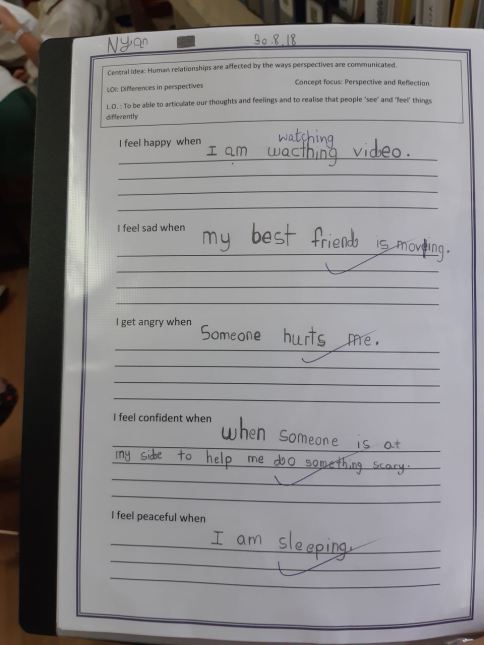 Nyan 30.8.18
Central Idea: Human relationships are affected by the ways perspectives are communicated.
LOI: Differences in perspectives Concept focus: Perspective and Reflection
L.O. : To be able to articulate our thoughts and feelings and to realise that people 'see' and 'feel' things
differently
watching
I feel happy when I am wacthing video.
I feel sad when my best friends is moving.
I get angry when Someone hurts me.
I feel confident when when someone is at
my side to help me do something scary.
I feel peaceful when I am sleeping.